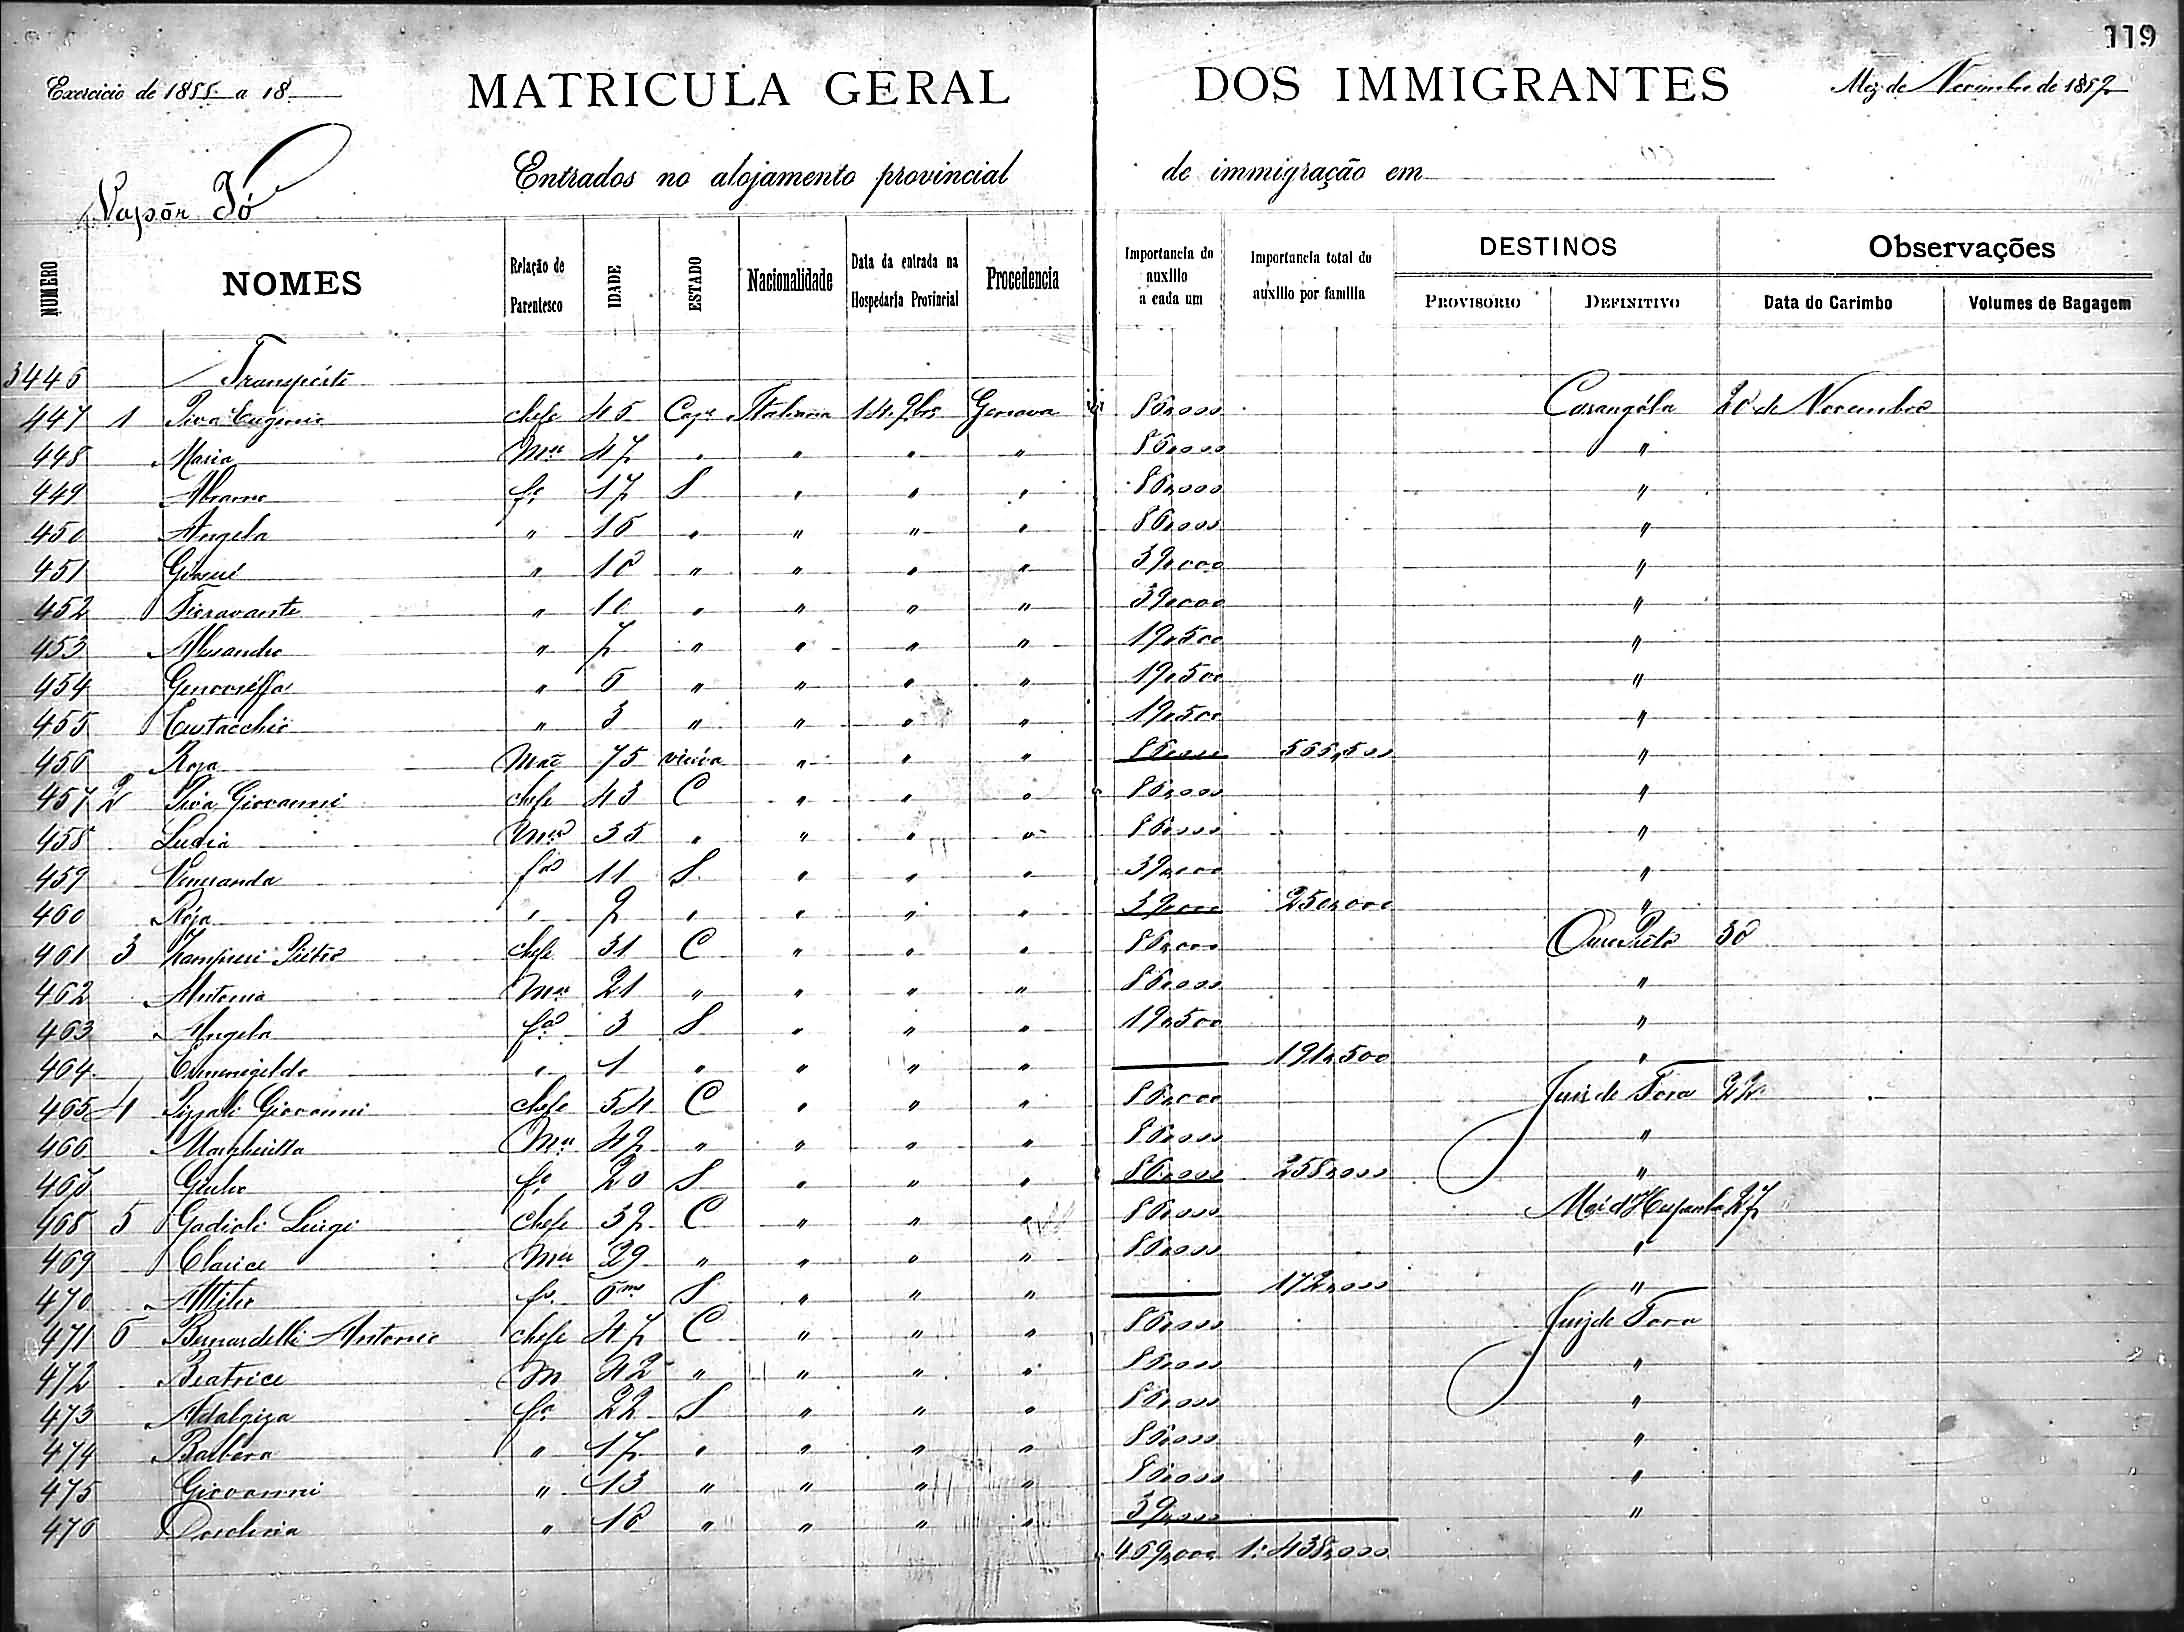 119
Exercicio de 1888 a 18
MATRICULA GERAL DOS IMMIGRANTES
Mez de Novembro de 1892
Entrados no alojamento provincial de immigração em
Vapôr Pó
NUMERO NOMES Relação de Parentesco IDADE ESTADO Nacionalidade Data da entrada na Hospedaria Provincial Procedencia Importancia do auxilio a cada um Importancia total do auxilio por familia DESTINOS PROVISORIO DEFINITIVO Observações Data do Carimbo Volumes de Bagagem
3446 Transporte
447 1 Piva Eugenio chefe 45 Italiana Genova 86,000 Carangóla 20 de Novembro
448 Maria Mer 47 " " " " 86,000 "
449 Abramo fo 17 S " " " 86,000 "
450 Angela " 15 " " " " 86,000 "
451 Giosué " 10 " " " " 39,000 "
452 Fioravante " 10 " " " " 39,000 "
453 Alessandro " 7 " " " " 19,500 "
454 Genoveffa " 5 " " " " 19,500 "
455 Eustacchio " 3 " " " " 19,500 "
456 Rosa Mãe 75 viúva " " " 86,000 566,500 "
457 2 Piva Giovanni chefe 43 C " " " 86,000 "
458 Lucia Mer 35 " " " " 86,000 "
459 Veneranda fa 11 S " " " 39,000 "
460 Rosa " 9 " " " " 39,000 250,000 "
461 3 Zampieri Piétro chefe 31 C " " " 86,000 Ouro Preto 30
462 Antonia Mer 21 " " " " 86,000 "
463 Angela fa 3 S " " " 19,500 "
464 Ermenegildo " 1 " " " " 191,500 "
465 4 Giovanni chefe 54 C " " " 86,000 Juiz de Fora 22
466 Margherita Mer 49 " " " " 86,000 "
467 Giulio fo 20 S " " " 86,000 258,000 "
468 5 Gadioli Luigi chefe 39 C " " " 86,000 Mar d'Hespanha 27
469 Clarice Mer 29 " " " " 86,000 "
470 Attilio fo 5m S " " " 172,000 "
471 6 Bernardelli Antonio chefe 47 C " " " 86,000 Juiz de Fora
472 Beatrice M 42 " " " " 86,000 "
473 Adalgiza fa 22 S " " " 86,000 "
474 Barbara " 17 " " " " 86,000 "
475 Giovanni " 13 " " " " 86,000 "
476 " 10 " " " " 39,000 "
469,000 1:438,000